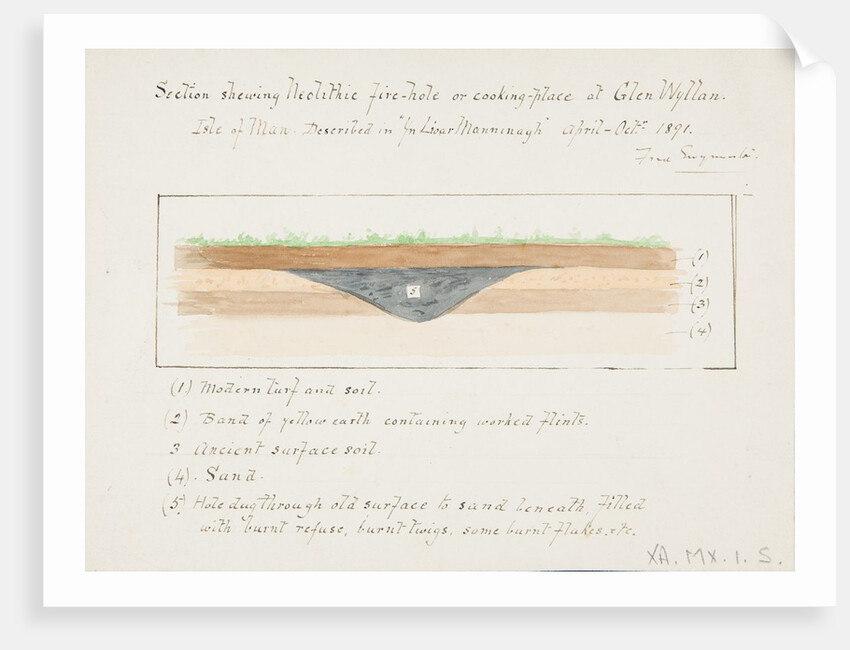 Section shewing Neolithic fire-hole or cooking-place at Glen Wyllan.
Isle of Man. Described in "Yn Lioar Manninagh" April-Octr. 1891.
Fred
(1)
(2)
5
(3)
(4)
(1) Modern turf and soil.
(2) Band of yellow earth containing worked flints.
3 Ancient surface soil.
(4). Sand.
(5) Hole dug through old surface to sand beneath, filled
with burnt refuse, burnt twigs, some burnt flakes. etc.
XA. MX. 1. S.